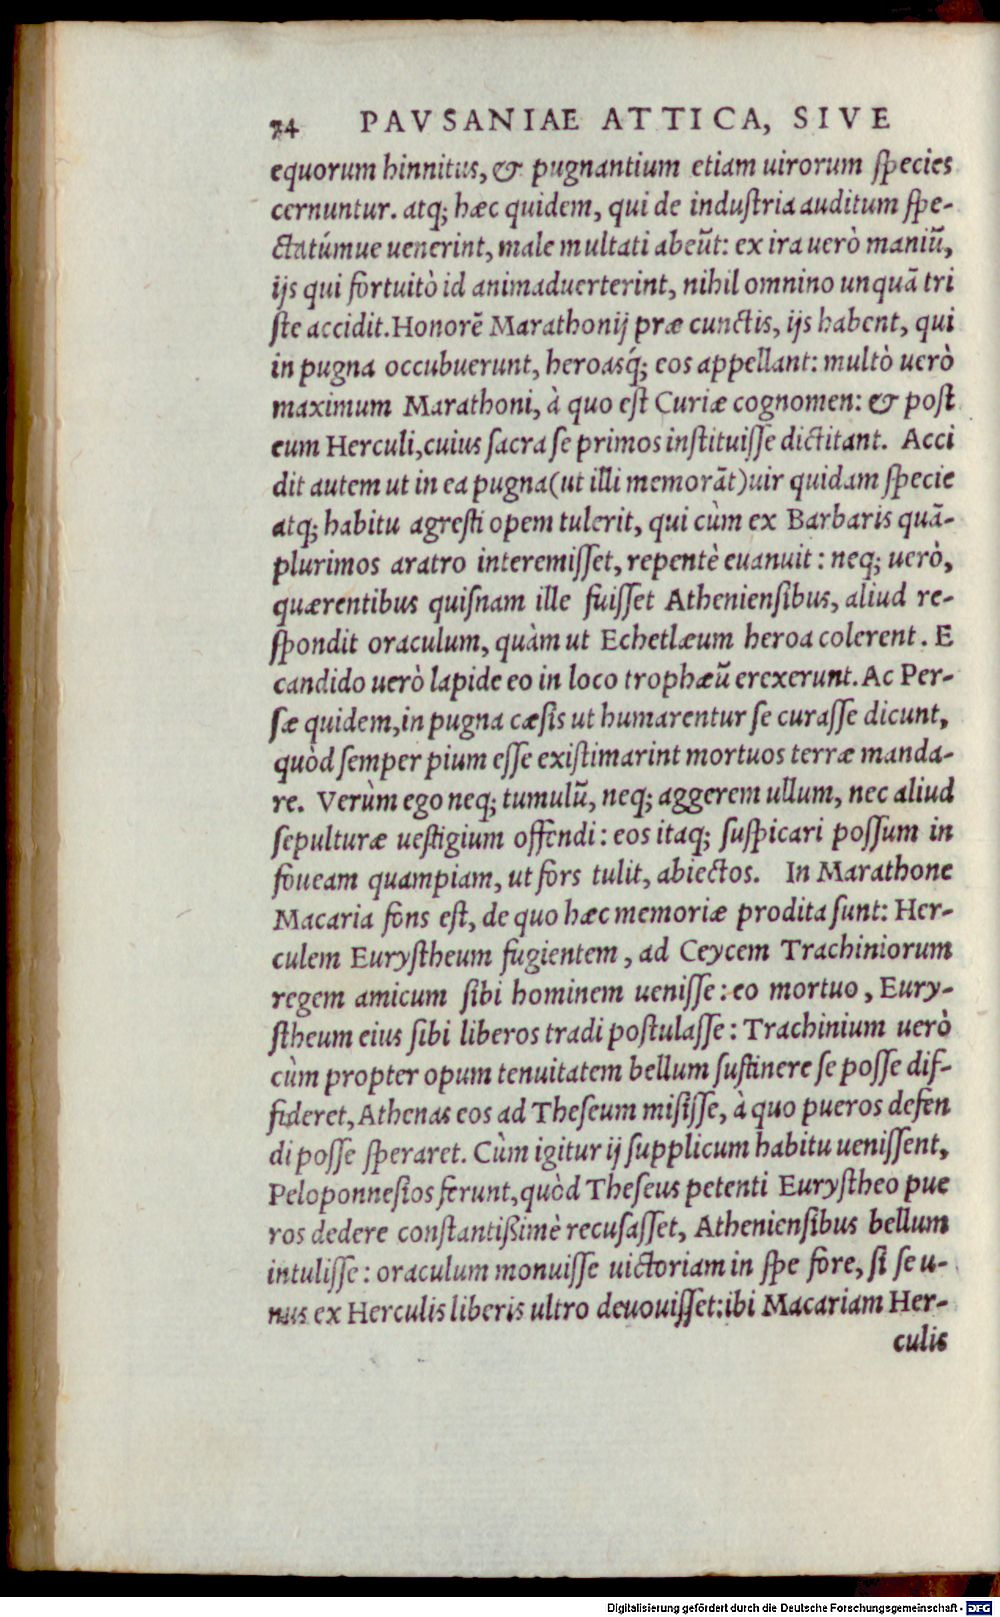 74 PAVSANIAE ATTICA, SIVE
equorum hinnitus, & pugnantium etiam uirorum ſpecies
cernuntur. atq; hæc quidem, qui de induſtria auditum ſpe-
ctatúmue uenerint, male multati abeūt: ex ira uerò maniū,
ijs qui fortuitò id animaduerterint, nihil omnino unquā tri
ſte accidit. Honorē Marathonij præ cunctis, ijs habent, qui
in pugna occubuerunt, heroasq́; eos appellant: multò uerò
maximum Marathoni, à quo eſt Curiæ cognomen: & poſt
eum Herculi, cuius ſacra ſe primos inſtituiſſe dictitant. Acci
dit autem ut in ea pugna (ut illi memorāt) uir quidam ſpecie
atq; habitu agreſti opem tulerit, qui cùm ex Barbaris quā-
plurimos aratro interemiſſet, repentè euanuit: neq; uerò,
quærentibus quiſnam ille fuiſſet Athenienſibus, aliud re-
ſpondit oraculum, quàm ut Echetlæum heroa colerent. E
candido uerò lapide eo in loco trophæū erexerunt. Ac Per-
ſæ quidem, in pugna cæſis ut humarentur ſe curaſſe dicunt,
quòd ſemper pium eſſe exiſtimarint mortuos terræ manda-
re. Verùm ego neq; tumulū, neq; aggerem ullum, nec aliud
ſepulturæ ueſtigium offendi: eos itaq; ſuſpicari poſſum in
foueam quampiam, ut fors tulit, abiectos. In Marathone
Macaria fons eſt, de quo hæc memoriæ prodita ſunt: Her-
culem Euryſtheum fugientem, ad Ceycem Trachiniorum
regem amicum ſibi hominem ueniſſe: eo mortuo, Eury-
ſtheum eius ſibi liberos tradi poſtulaſſe: Trachinium uerò
cùm propter opum tenuitatem bellum ſuſtinere ſe poſſe dif-
fideret, Athenas eos ad Theſeum miſiſſe, à quo pueros defen
di poſſe ſperaret. Cùm igitur ij ſupplicum habitu ueniſſent,
Peloponneſios ferunt, quòd Theſeus petenti Euryſtheo pue
ros dedere conſtantißimè recuſaſſet, Athenienſibus bellum
intuliſſe: oraculum monuiſſe uictoriam in ſpe fore, ſi ſe u-
nus ex Herculis liberis ultro deuouiſſet: ibi Macariam Her-
culis
Digitalisierung gefördert durch die Deutsche Forschungsgemeinschaft - DFG